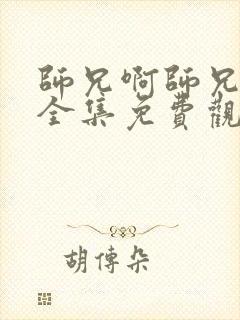 師兄啊師兄
全集免費觀
胡傳朵